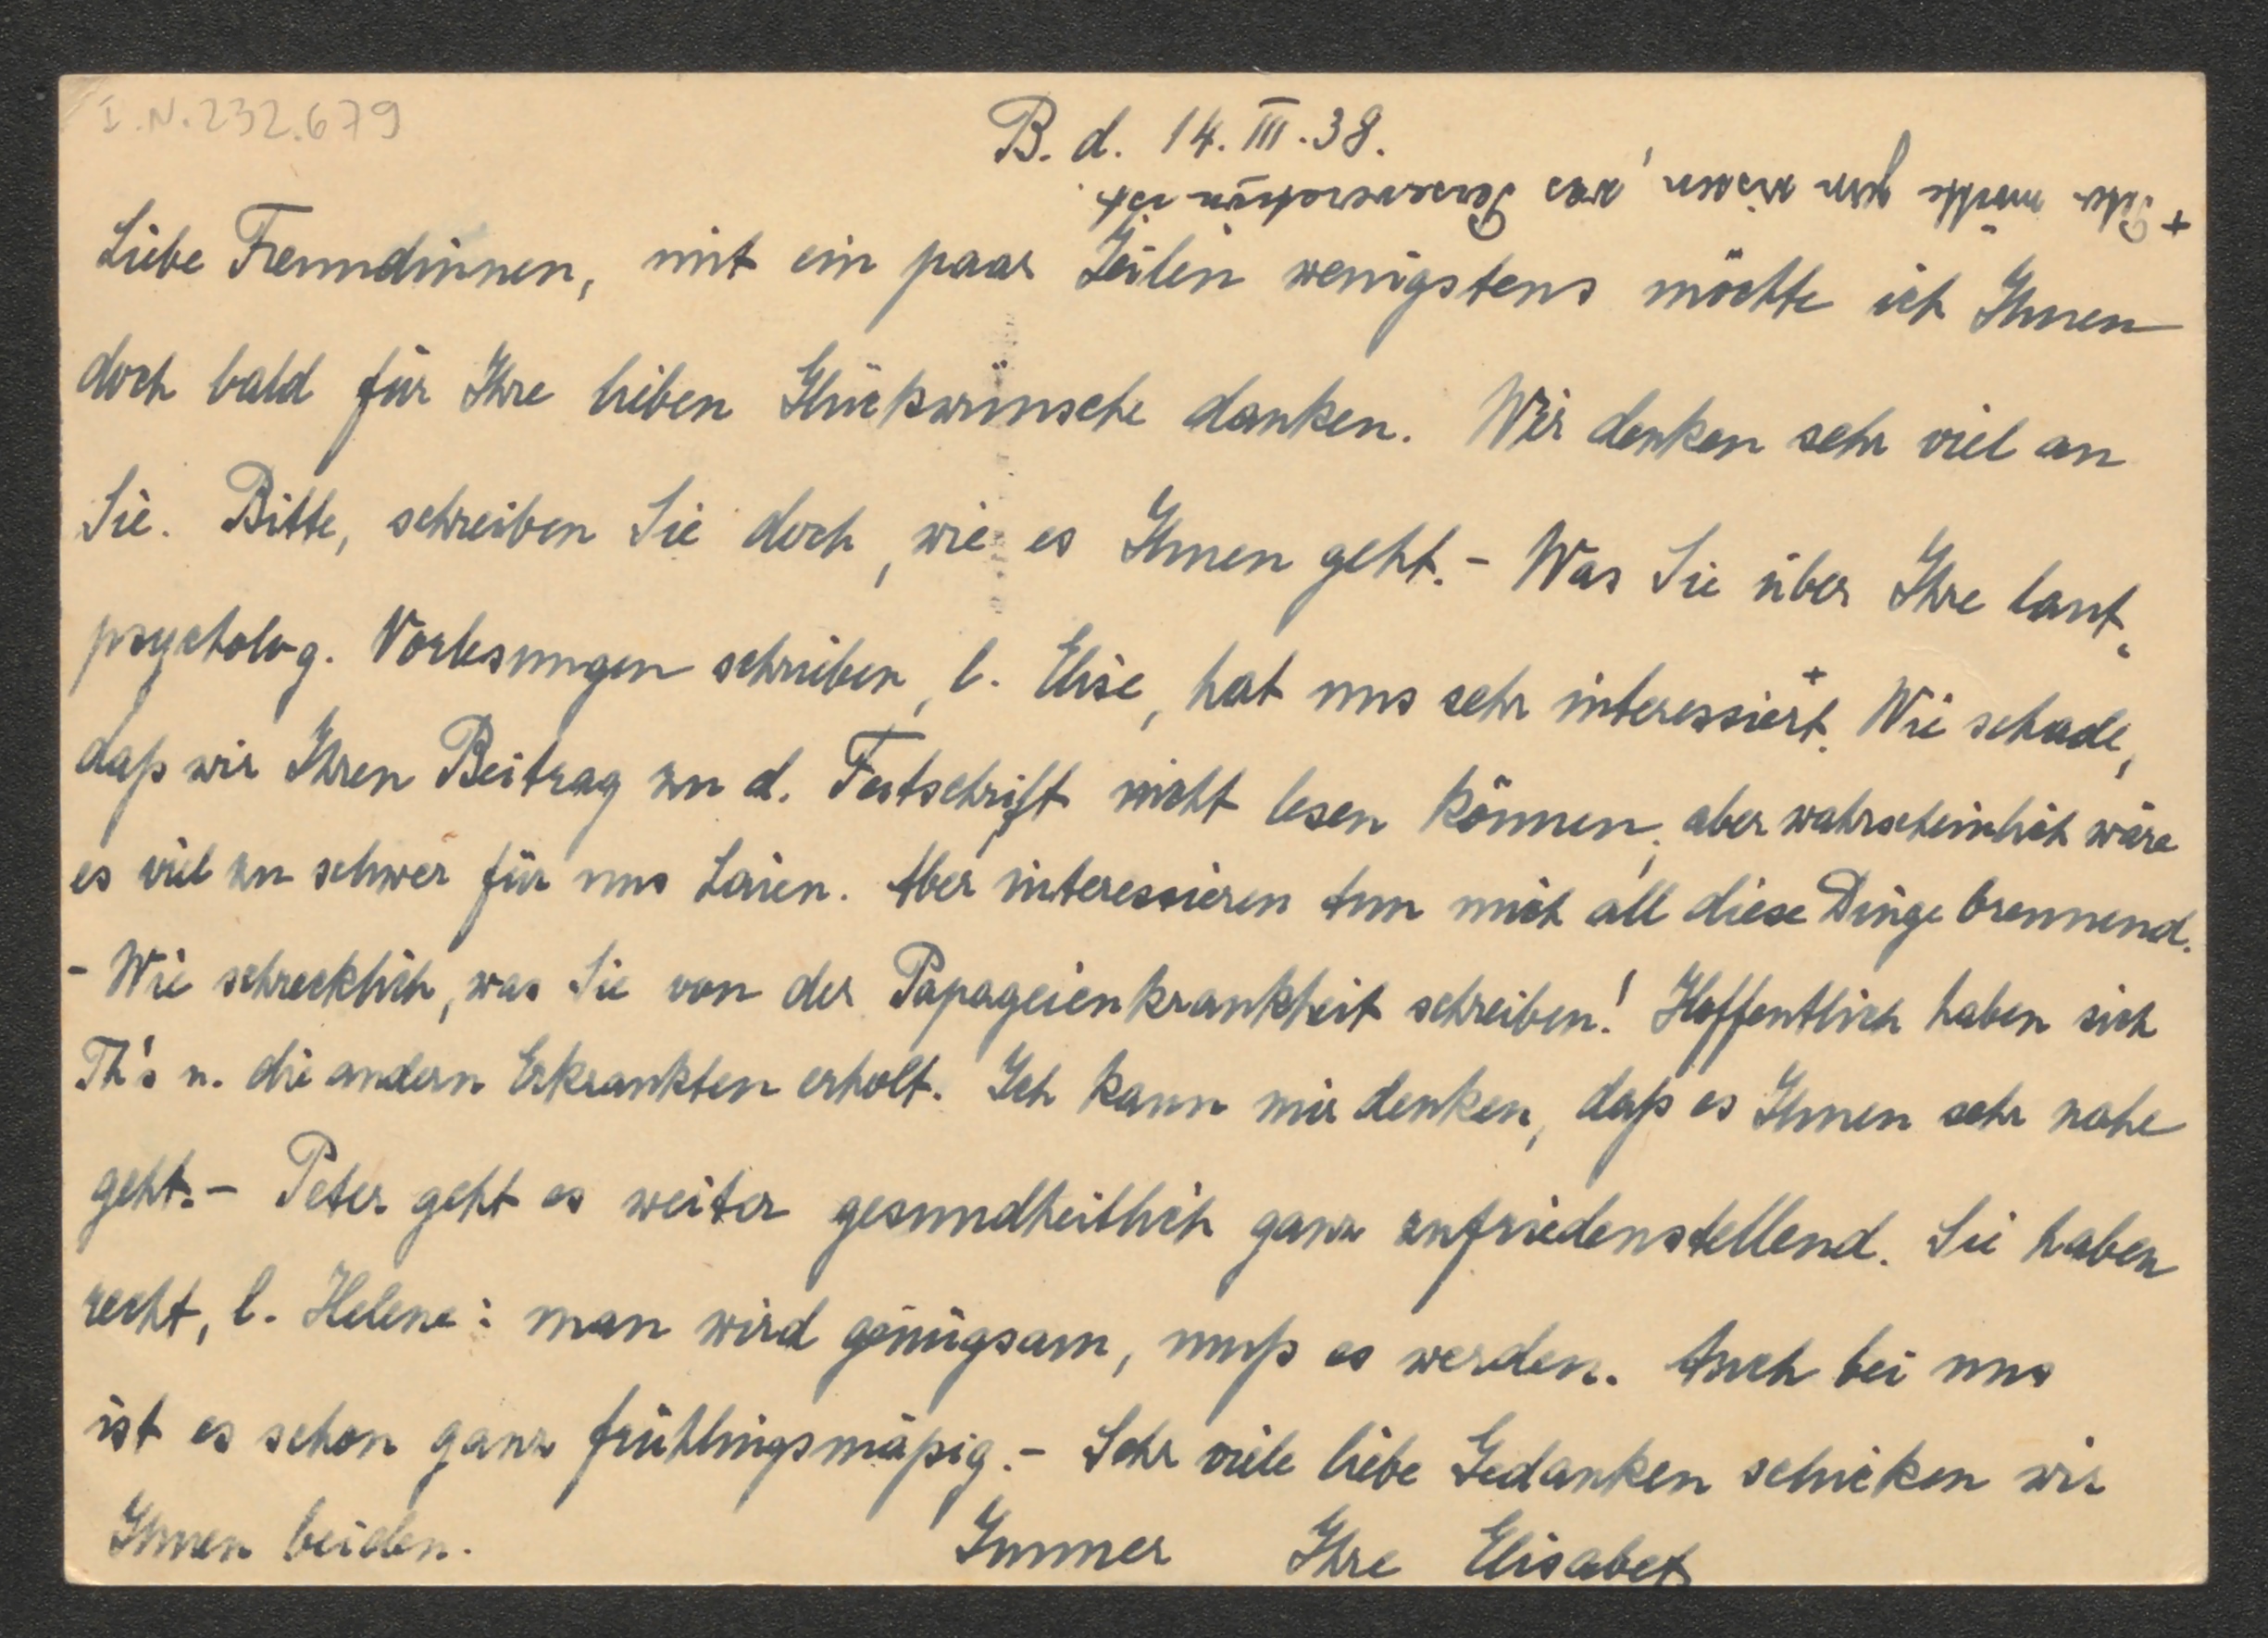 I.N.232.679
B. d. 14. III. 38.
+ Peter möchte gern wissen, was
Liebe Freundinnen, mit ein paar Zeilen wenigstens möchte ich Ihnen
doch bald für Ihre lieben Glückwünsche danken. Wir denken sehr viel an
Sie. Bitte, schreiben Sie doch, wie es Ihnen geht. - Was Sie über Ihre laut-
psycholog. Vorlesungen schrieben, l. Elise, hat uns sehr interessiert.+ Wie schade,
daß wir Ihren Beitrag zu d. Festschrift nicht lesen können; aber wahrscheinlich wäre
es viel zu schwer für uns Laien. Aber interessieren tun mich all diese Dinge brennend.
- Wie schrecklich, was Sie von der Papageienkrankheit schreiben! Hoffentlich haben sich
Th's u. die andern Erkrankten erholt. Ich kann mir denken, daß es Ihnen sehr nahe
geht. - Peter geht es weiter gesundheitlich ganz zufriedenstellend. Sie haben
recht, l. Helene: man wird genügsam, muß es werden. Auch bei uns
ist es schon ganz frühlingsmäßig. - Sehr viele liebe Gedanken schicken wir
Ihnen beiden. Immer Ihre Elisabet